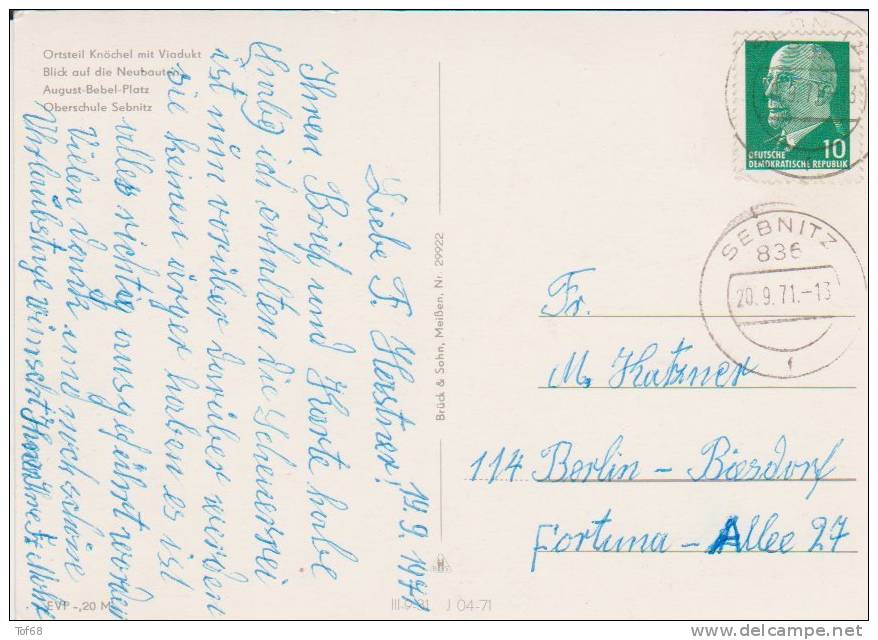 Ortsteil Knöchel mit Viadukt
Blick auf die Neubauten
August-Bebel-Platz
Oberschule Sebnitz
19.9.1971
Liebe F. Kerstner!
Ihren Brief und Karte habe
ich erhalten die Scheuerrei
ist nun vorüber darüber werden
sie keinen ärger haben es ist
alles richtig ausgeführt worden
Vielen Dank und noch schöne
Urlaubstage wünscht Ihnen Ihre F.
EVP -,20 M
III-9-31 J 04-71
Brück & Sohn, Meißen, Nr. 29922
DEUTSCHE
DEMOKRATISCHE REPUBLIK
10
SEBNITZ
836
20.9.71.-13
f
Fr.
M. Katzner
114 Berlin - Biesdorf
Fortuna - Allee 27
Tof68
delcampe.net